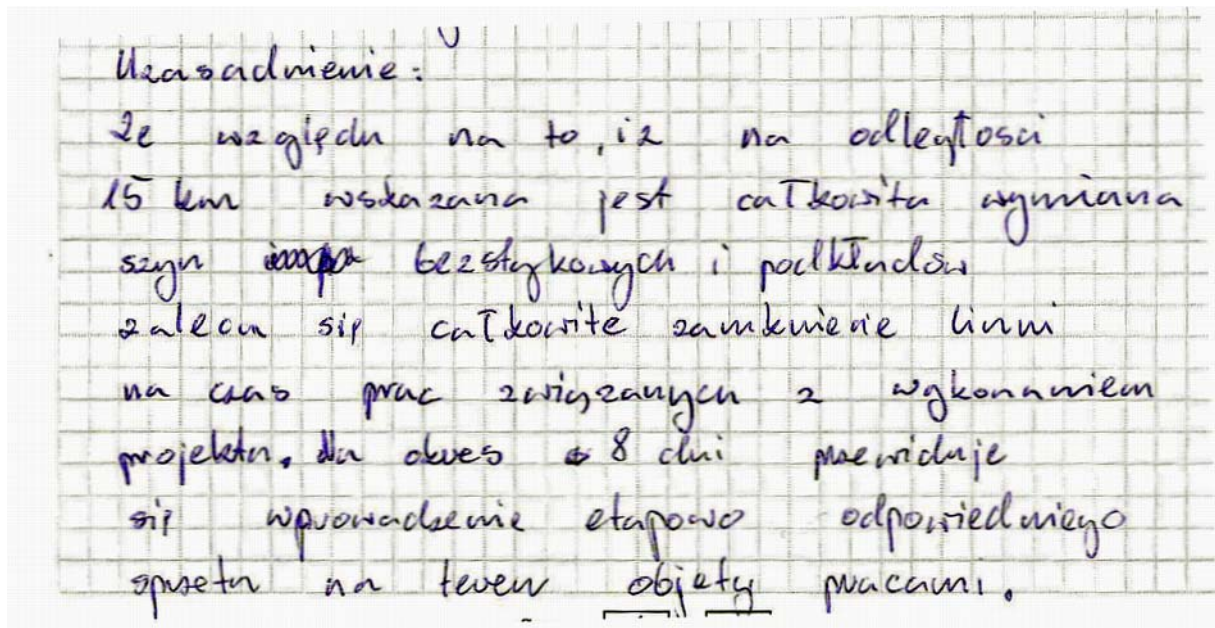 Uzasadnienie:
Ze względu na to, iż na odległosci
15 km wskazana jest całkowita wymiana
szyn bezstykowych i podkładów
zaleca się całkowite zamkniecie linni
na czas prac związanych z wykonaniem
projektu. Na okres 8 dni przewiduje
się wprowadzenie etapowo odpowiedniego
sprzetu na teren objety pracami.